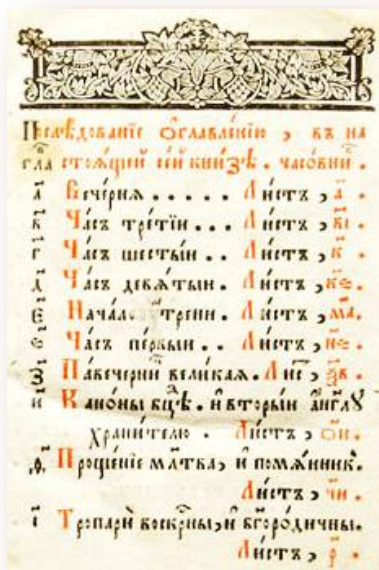 Послѣдованїе ѡ҆главленїю , въ на
гла стоѧщей сей книзѣ . часовни .
а҃ Вече́рнѧ ..... Ли́стъ , а҃ .
в҃ Ча́съ тре́тїи ... Ли́стъ , в҃і .
г҃ Ча́съ шесты́и .. Ли́стъ , к҃ .
д҃ Ча́съ девѧ́тыи . Ли́стъ , к҃е .
е҃ Нача́ло ᲂу҆́трени . Ли́стъ , м҃а .
Ча́съ пе́рвыи .. Ли́стъ , н҃е .
з҃ Павече́рни вели́каѧ . Ли́с ,
и҃ Кано́ны бцⷣѣ . и҆ вторы́и а҆́нг҃лꙋ
храни́телю . Ли́стъ , ѻ҃и .
ѳ҃ Проще́нїе мл҃тва , и҆ помѧ́нникъ .
Ли́стъ , ч҃и .
і҃ Тропарѝ воскр҃ны , и҆ бг҃оро́дичны .
Ли́стъ , р҃ .